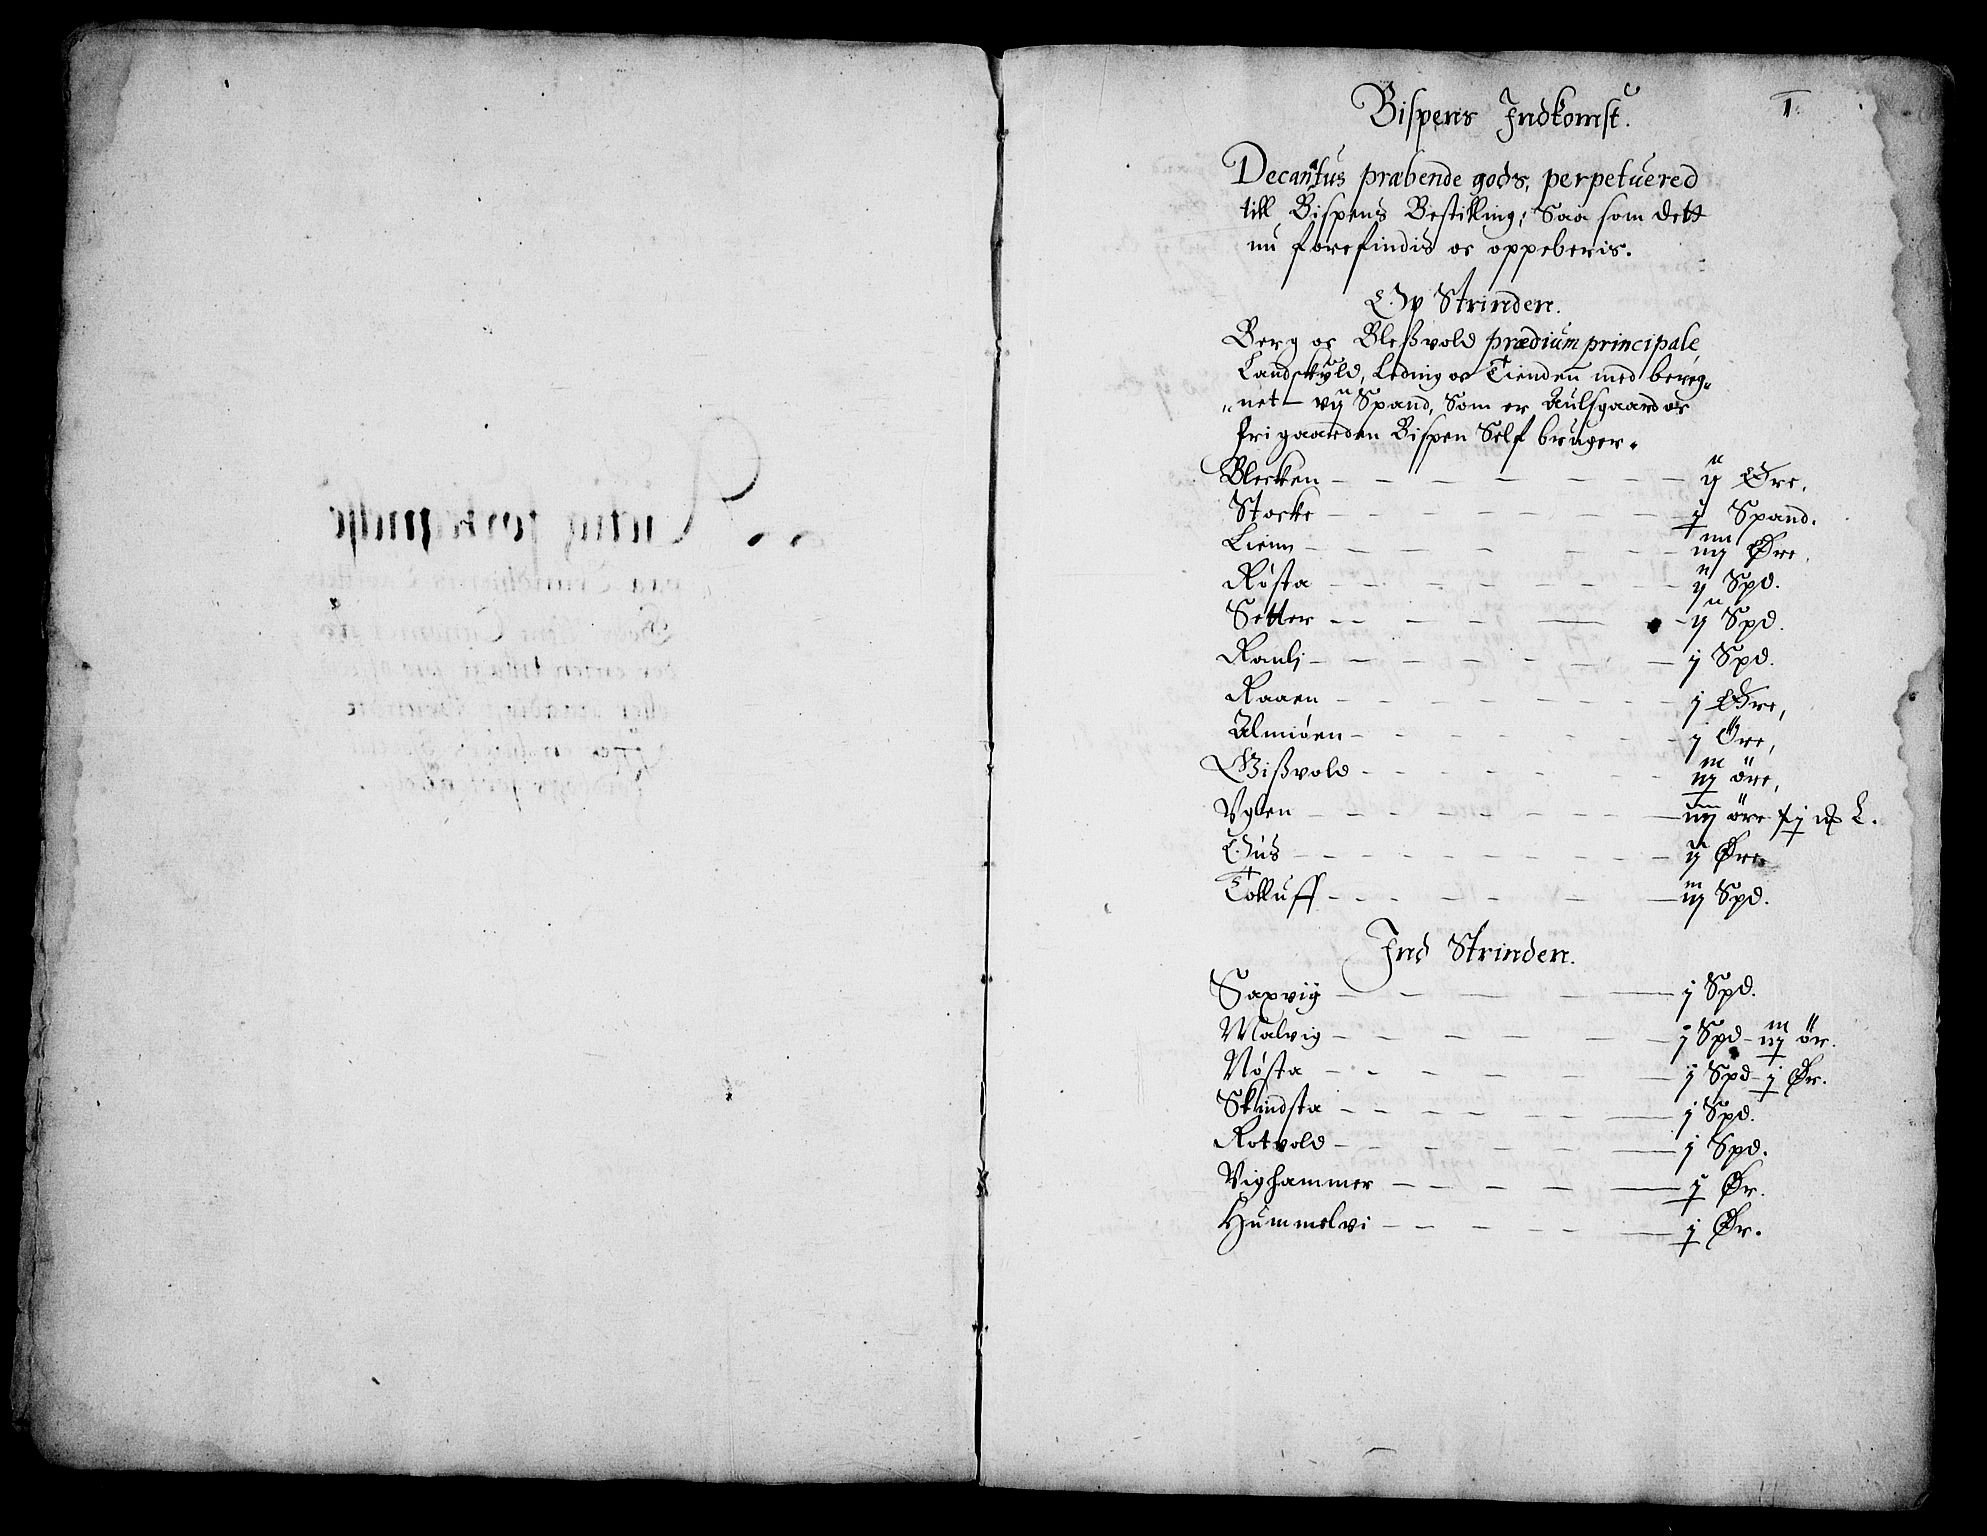 1.
Bispens Indkomst.
Decantus præbende gods, perpetuered
till Bispens Bestilling, Saa som dett
nu forefindis oc oppeberis.
Op Strinden.
Berg oc Bleßvold prædium principale,
Landskyld, Leding oc Tienden med bereg„
„net – vij Spand, Som er Aulsgaard oc
frigaarden Bispen Self bruger.
Blecken – – – – – – – ij Øre,
Stocke – – – – – – – j Spand.
Lienn – – – – – – – iiij Øre,
Røsta – – – – – – – ij Spd.
Setter – – – – – – – ij Spd.
Ranli – – – – – – – j Spd.
Raaen – – – – – – – j Øre,
Almiøen – – – – – – j Öre,
Gißvold – – – – – – – iij öre,
Vglen – – – – – – – iiij öre
Hus – – – – – – – ij Øre
Tolluff – – – – – – – iij Spd.
Ind Strinden.
Saxviig – – – – – – j Spd.
Malvig – – – – – – j Spd – iij ör.
Nøsta – – – – – – j Spd – j Ør.
Skindsta – – – – – – j Spd.
Rotvold – – – – – – j Spd.
Vighammer – – – – – – j Ør.
Hummelvi – – – – – – j Ør.